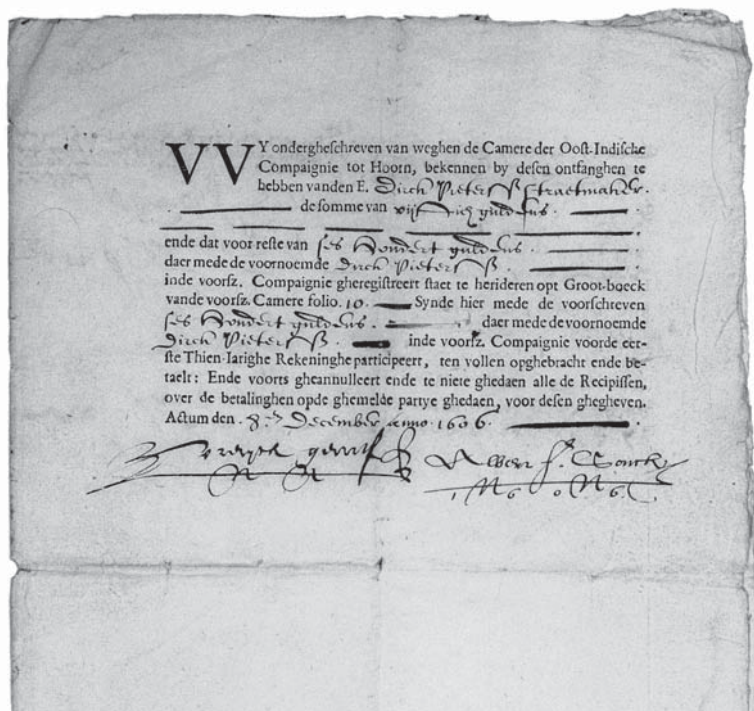 VVY ondergheschreven van weghen de Camere der Oost-Indische
Compaignie tot Hoorn, bekennen by desen ontfanghen te
hebben vanden E. Dirck Pieters Straetmaker.
de somme van vijftich guldens.
ende dat voor reste van ses hondert guldens.
daer mede de voornoemde Dirck Pieters
inde voorsz. Compaignie gheregistreert staet te herideren opt Groot-boeck
vande voorsz. Camere folio. 10. Synde hier mede de voorschreven
ses hondert guldens. daer mede de voornoemde
Dirck Pieters. inde voorsz. Compaignie voorde eer-
ste Thien-Iarighe Rekeninghe participeert, ten vollen opghebracht ende be-
taelt: Ende voorts gheannulleert ende te niete ghedaen alle de Recipissen,
over de betalinghen opde ghemelde partye ghedaen, voor desen ghegheven.
Actum den. December anno. 1606.
1606